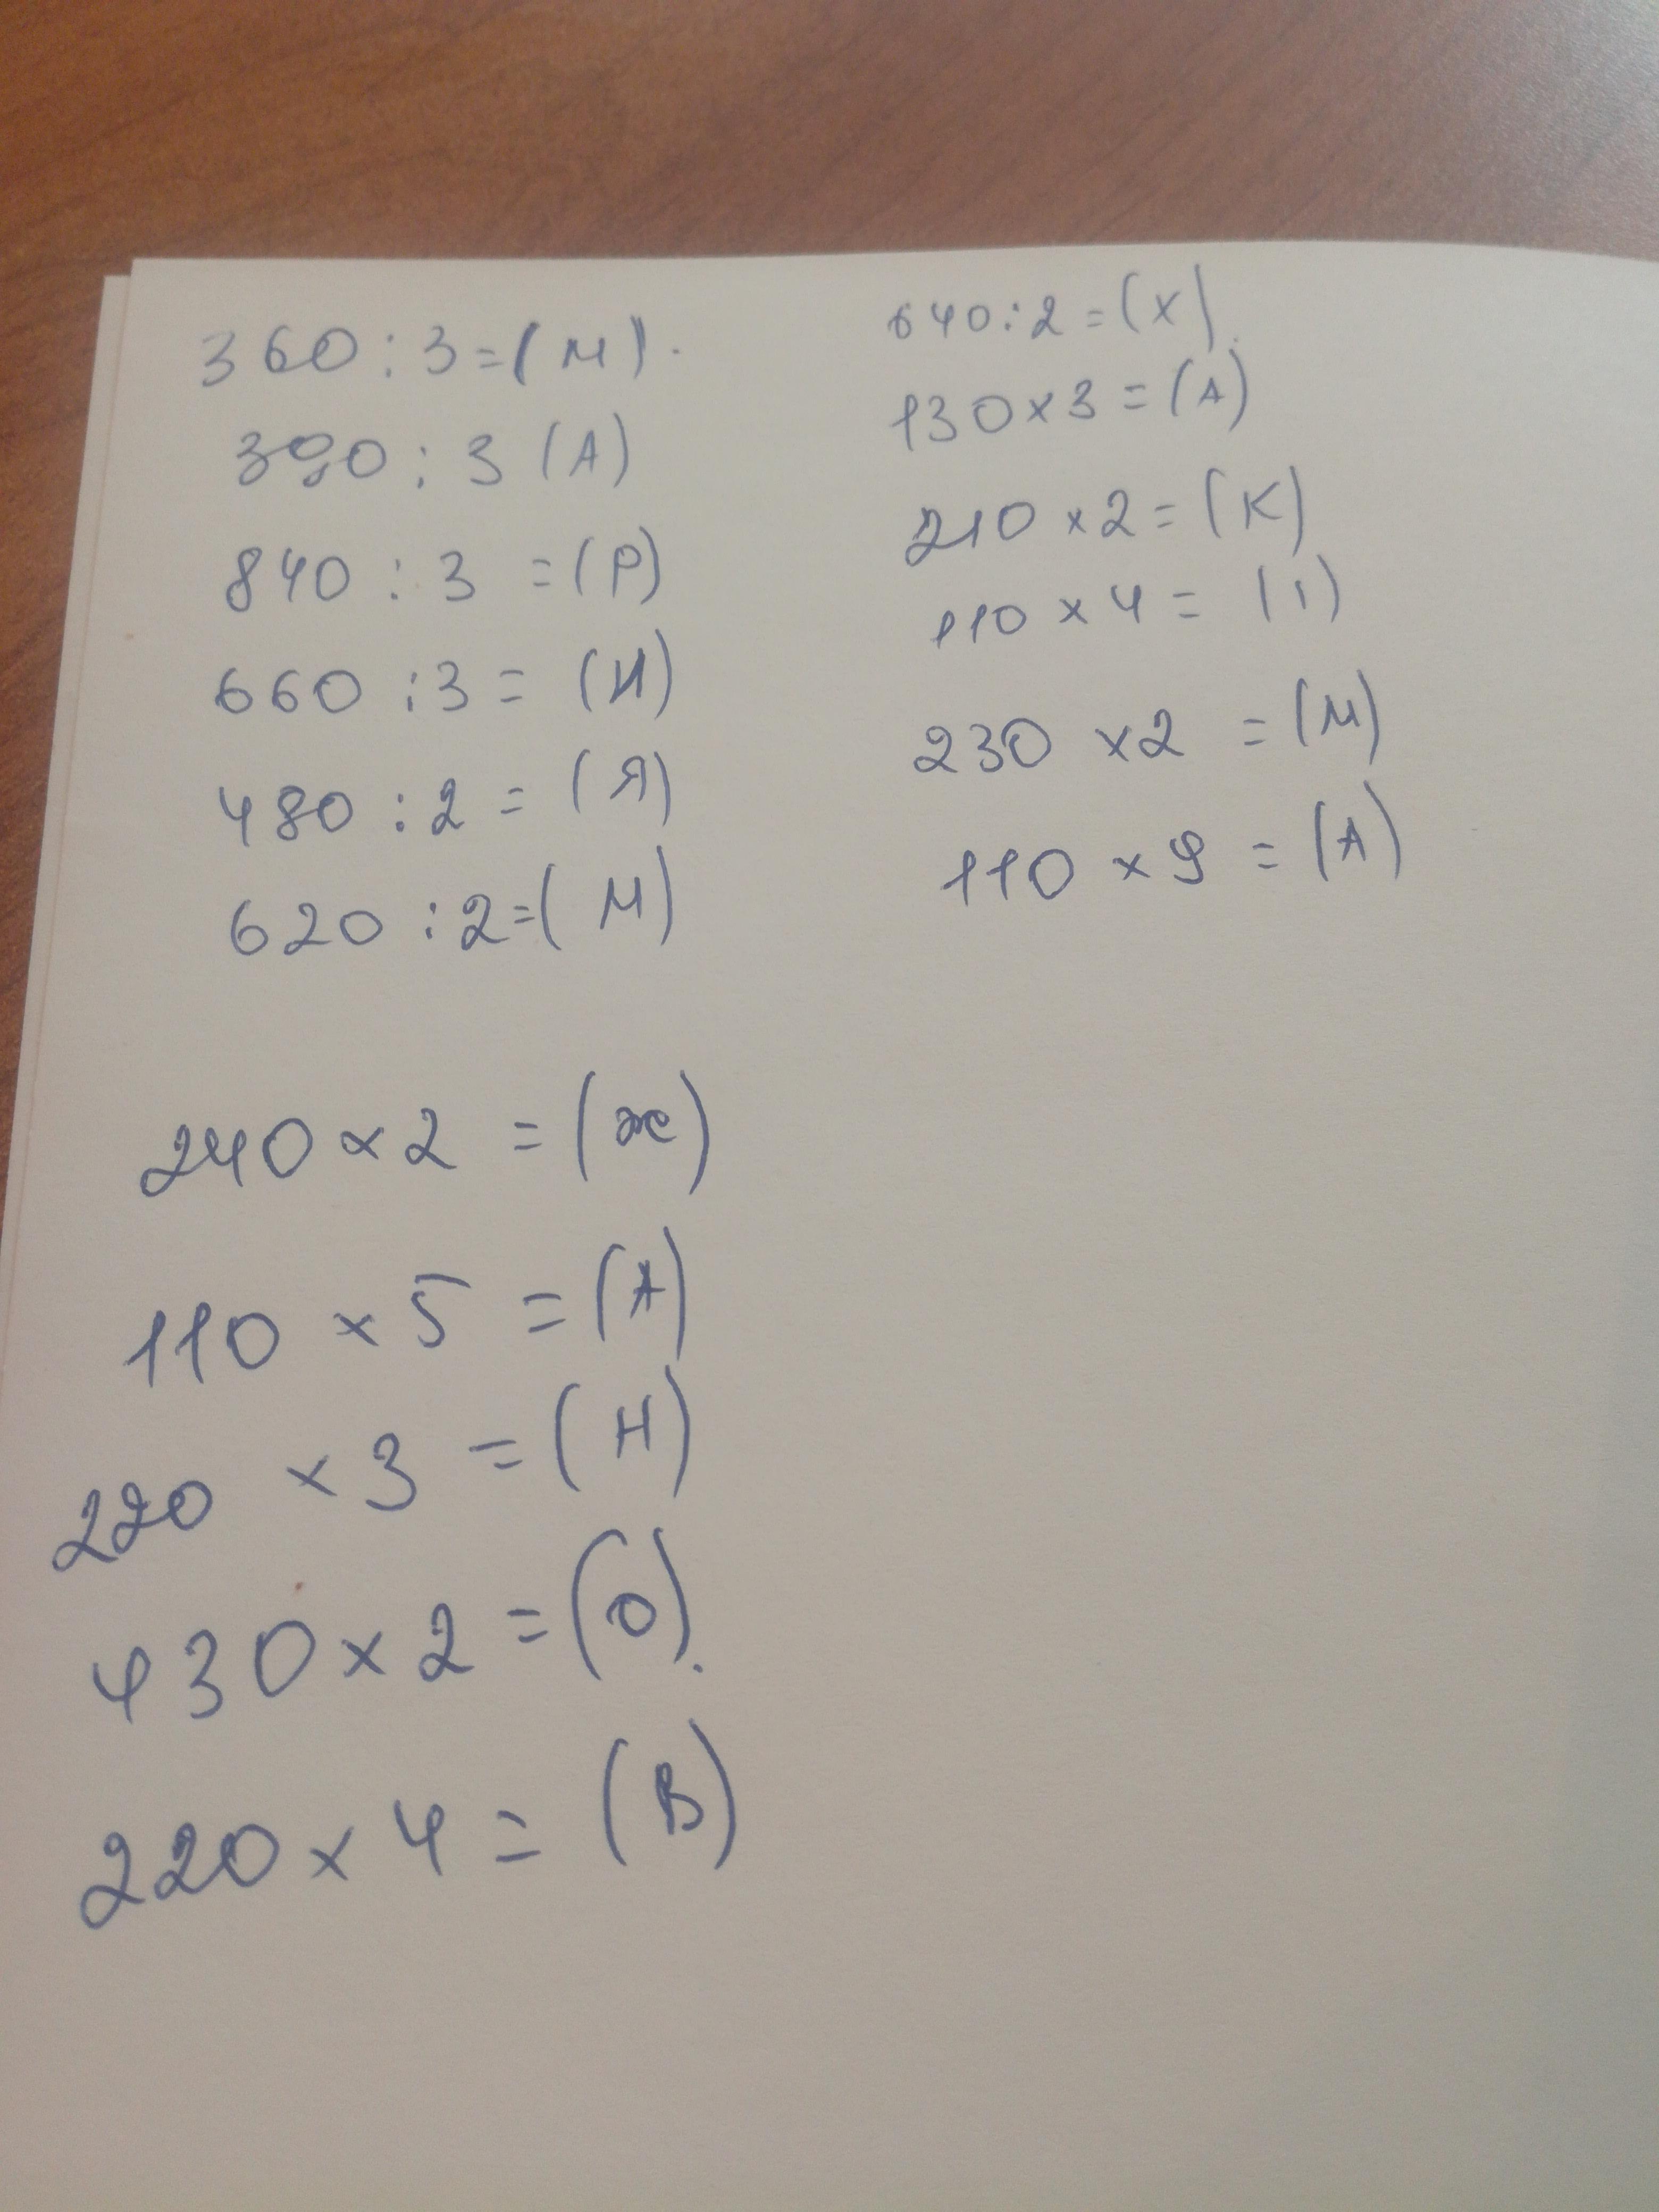 360 : 3 = (М).
390 : 3 (А)
840 : 3 = (Р)
660 : 3 = (И)
480 : 2 = (Я)
620 : 2 = (М)
240 × 2 = (ж)
110 × 5 = (А)
220 × 3 = (Н)
430 × 2 = (О).
220 × 4 = (В)
640 : 2 = (Х).
130 × 3 = (А)
210 × 2 = (К)
110 × 4 = (І)
230 × 2 = (М)
110 × 9 = (А)